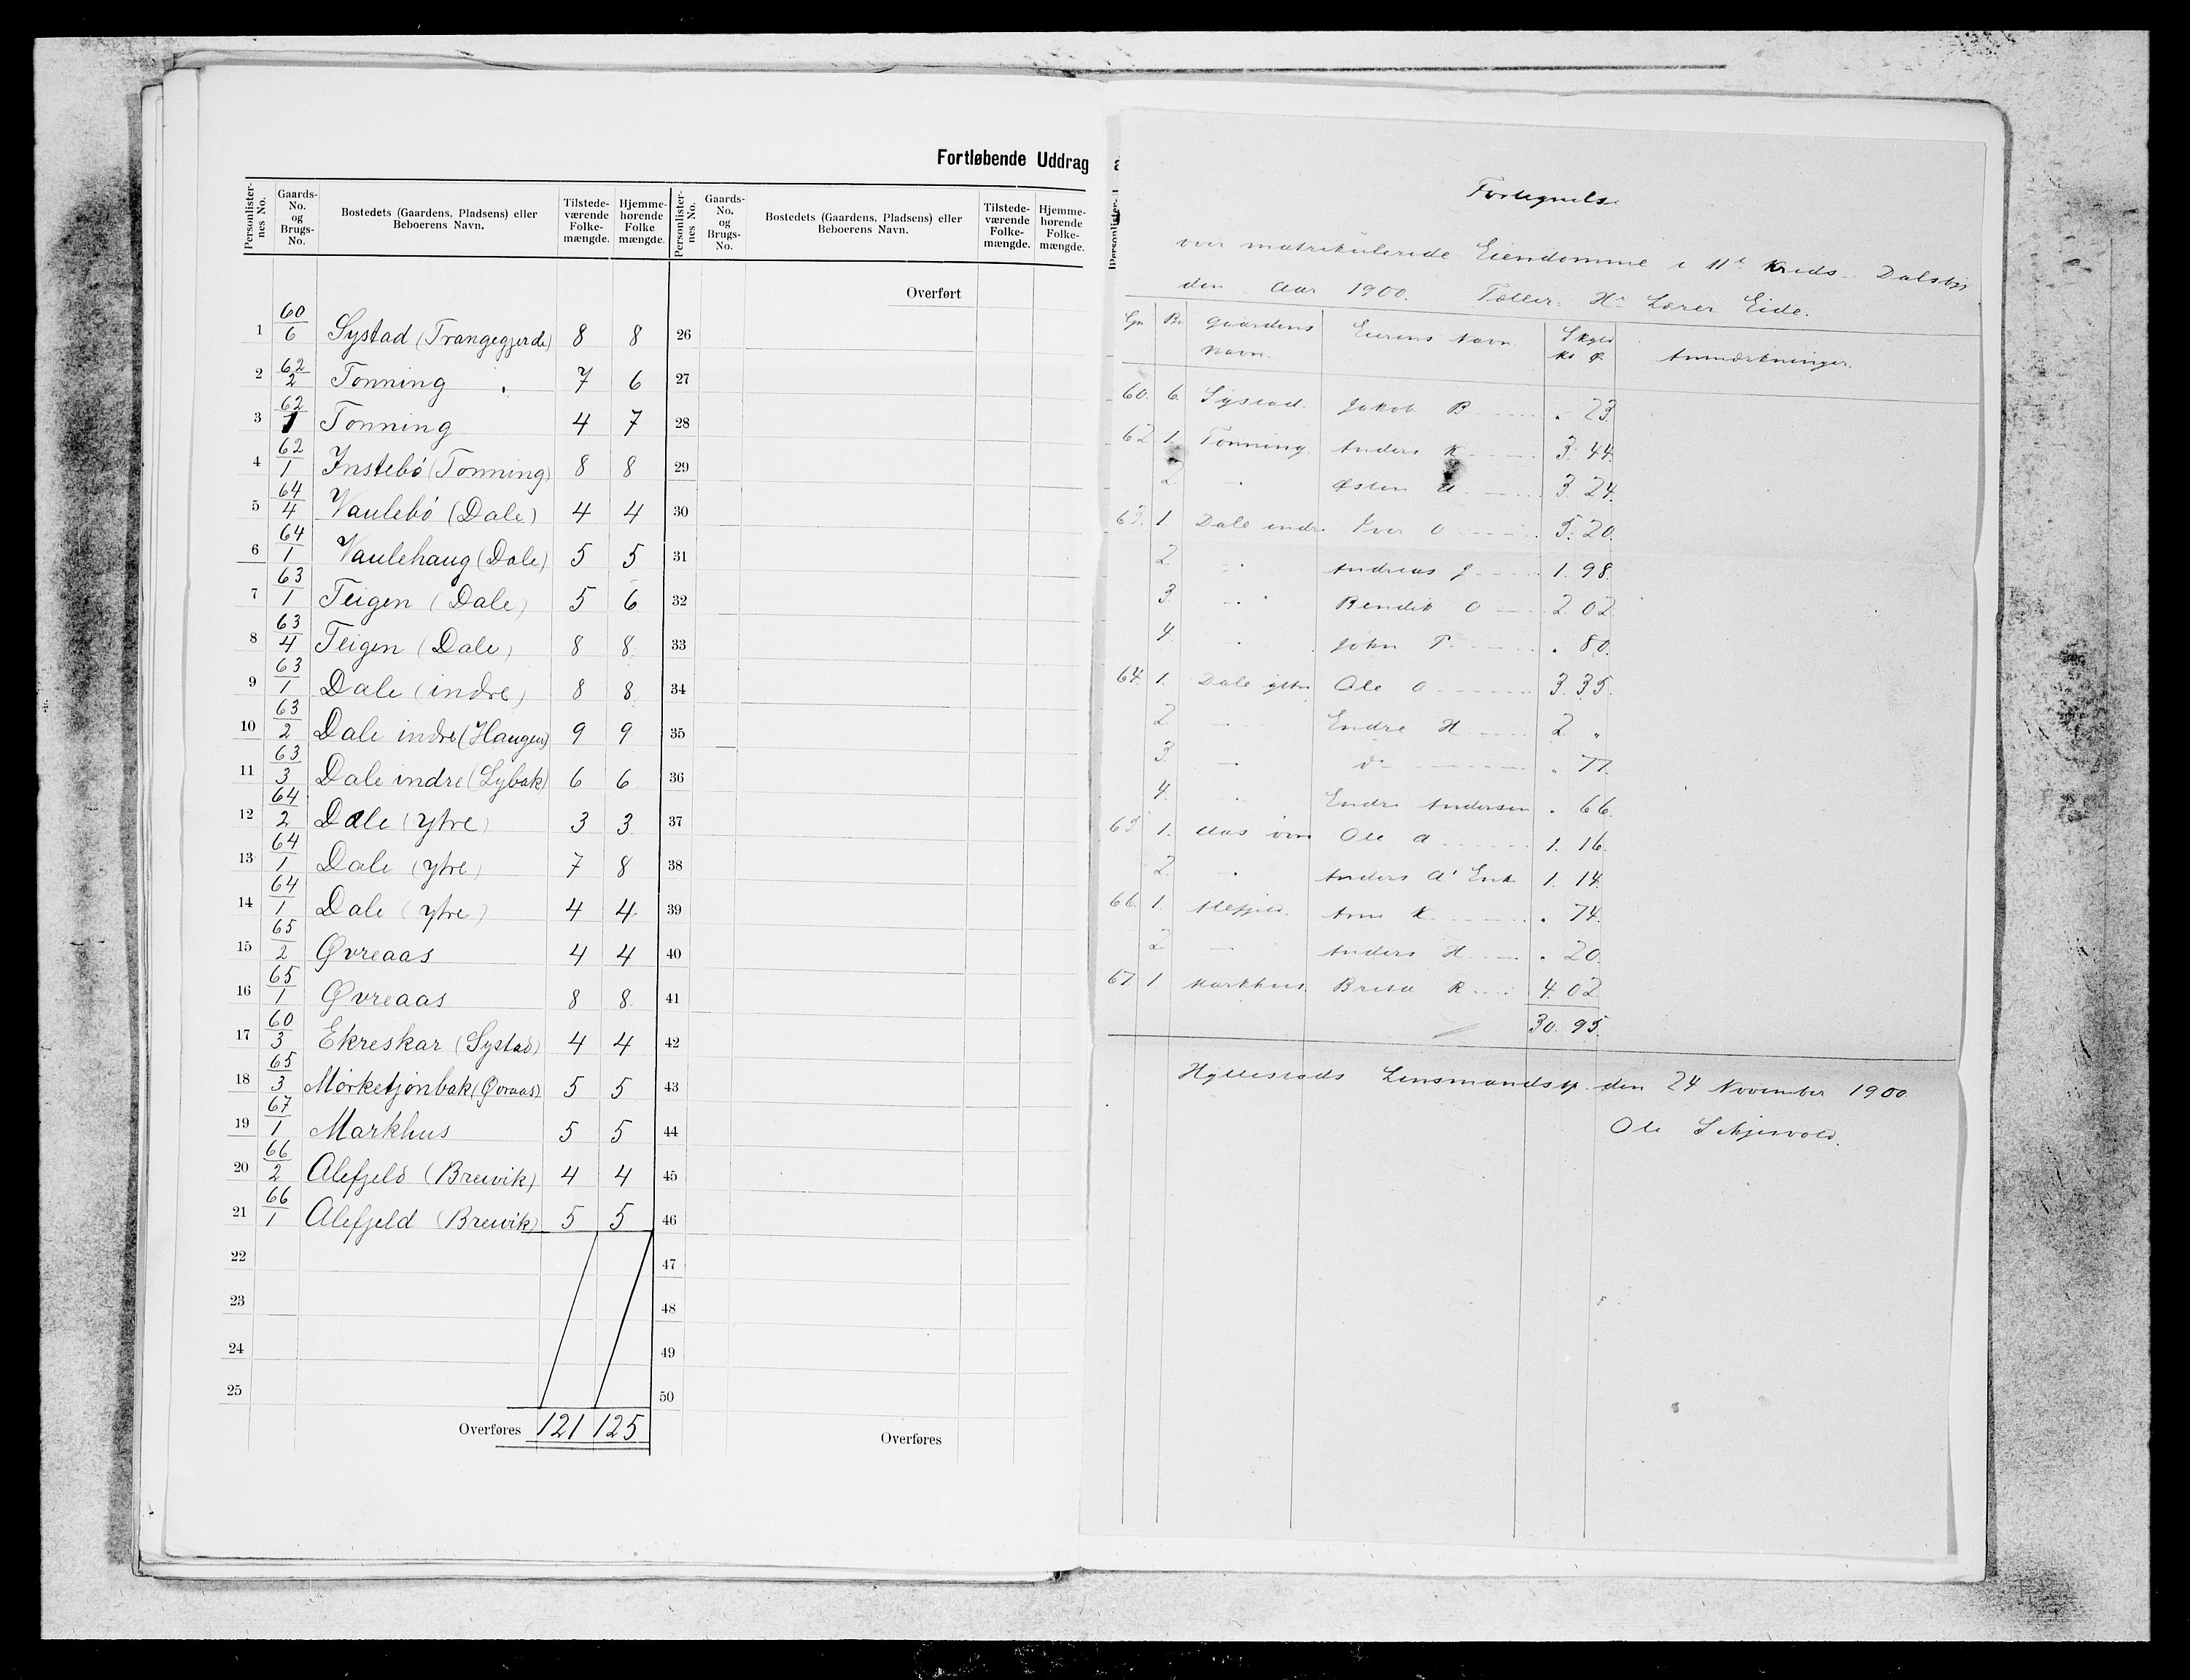 Fortløbende Uddrag
Personlister-nes No. Gaards-No. og Brugs-No. Bostedets (Gaardens, Pladsens) eller Beboerens Navn. Tilstede-værende Folke-mængde. Hjemme-hørende Folke mængde. Personlister-nes No. Gaards-No. og Brugs-No. Bostedets (Gaardens, Pladsens) eller Beboerens Navn. Tilstede-værende Folke-mængde. Hjemme-hørende Folke-mængde.
Overført
1 60/6 Systad (Trangegjerde) 8 8 26
2 62/2 Tonning 7 6 27
3 62/1 Tonning 4 7 28
4 62/1 Instebø (Tonning) 8 8 29
5 64/4 Vaulebø (Dale) 4 4 30
6 64/1 Vaulehaug (Dale) 5 5 31
7 63/1 Teigen (Dale) 5 6 32
8 63/4 Teigen (Dale) 8 8 33
9 63/1 Dale (indre) 8 8 34
10 63/2 Dale indre (Haugen) 9 9 35
11 63/3 Dale indre (Lybak) 6 6 36
12 64/2 Dale (ytre) 3 3 37
13 64/1 Dale (ytre) 7 8 38
14 64/1 Dale (ytre) 4 4 39
15 65/2 Øvreaas 4 4 40
16 65/1 Øvreaas 8 8 41
17 60/3 Ekreskar (Systad) 4 4 42
18 65/3 Mørketjønbak (Øvraas) 5 5 43
19 67/1 Markhus 5 5 44
20 66/2 Alefjeld (Breivik) 4 4 45
21 66/1 Alefjeld (Breivik) 5 5 46
22 47
23 48
24 49
25 50
Overføres 121 125 Overføres
Fortegnelse
over matrikulerede Eiendomme i 11te Kreds
den Aar 1900. Tæller: Hr Lærer Eide.
Gn Bn Gaardens Navn. Eierens Navn Skyld Kr Ø Anmærkninger.
60. 6. Systad. Jakob B . 23.
62 1. Tonning. Anders K 3. 44.
2 - Østen 3. 24.
63. 1. Dale indr. Iver O 5. 20.
2 - Andreas J 1. 98.
3. - Bendik O 2. 02
4. - John P . 80.
64. 1. Dale ytre Ole O 3. 35.
2 - Endre H 2 "
3. - do " 77.
4. - Endre Andersen . 66.
65 1. Aas øvre Ole A 1. 16.
2 - Anders A' Enk 1. 14.
66. 1. Alefjeld. Arne K . 74.
2 - Anders H . 20.
67 1 Markhus. Brita R 4. 02
30. 95.
Hyllestads Lensmandsp. den 24 November 1900
Ole